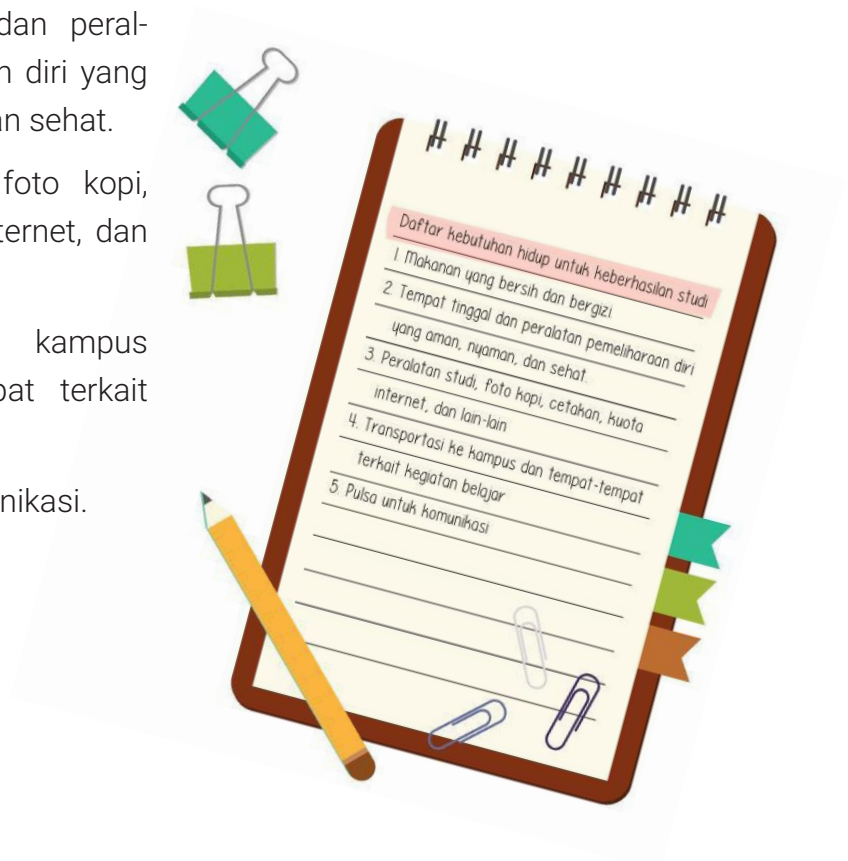 dan peral-
n diri yang
an sehat.
foto kopi,
ternet, dan
kampus
pat terkait
nikasi.
Daftar kebutuhan hidup untuk keberhasilan studi
1. Makanan yang bersih dan bergizi
2. Tempat tinggal dan peralatan pemeliharaan diri
yang aman, nyaman, dan sehat.
3. Peralatan studi, foto kopi, cetakan, kuota
internet, dan lain-lain
4. Transportasi ke kampus dan tempat-tempat
terkait kegiatan belajar
5. Pulsa untuk komunikasi